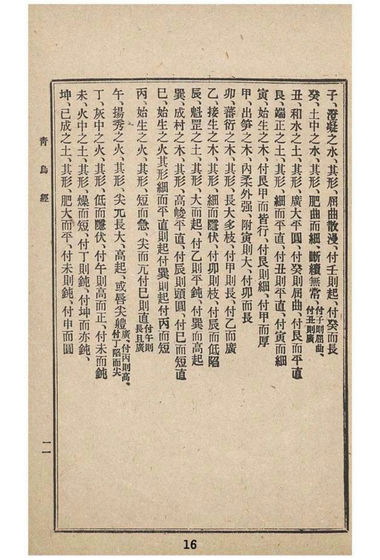 子、澄凝之水、其形、屈曲散漫、付壬則起、付癸而長
癸、土中之水、其形、肥曲而細、斷續無常、付子則屈曲、付丑則廣
丑、和水之土、其形、廣大平圓、付癸則屈曲、付艮而平直
艮、端正之土、其形、細而平直、付丑則平直、付寅而細
寅、始生之木、付艮甲而皆行、付艮則細、付甲而厚
甲、出笋之木、內柔外强、附寅則大、付卯而長
卯、蕃衍之木、其形、長大多枝、付甲則長、付乙而廣
乙、接生之木、其形、細而隱伏、付卯則枝、付辰而低陷
辰、魁罡之土、其形、大而起、付乙則平鈍、付巽而高起
巽、成材之木、其形、高峻平直、付辰則頭圓、付巳而短直
巳、始生之火、其形細而平直則起付巽則起付丙而短
丙、始生之火、其形、短而急、尖而亢付巳則直付午則長且廣
午、揚秀之火、其形、尖亢長大、高起、或唇尖觜廣、付丙則高、付丁陷而尖
丁、灰中之火、其形、低而隱伏、付午則高而正、付未而鈍
未、火中之土、其形、燥而短、付丁則鈍、付坤而亦鈍、
坤、已成之土、其形、肥大而平、付未則鈍、付申而圓
靑烏經
一一
16